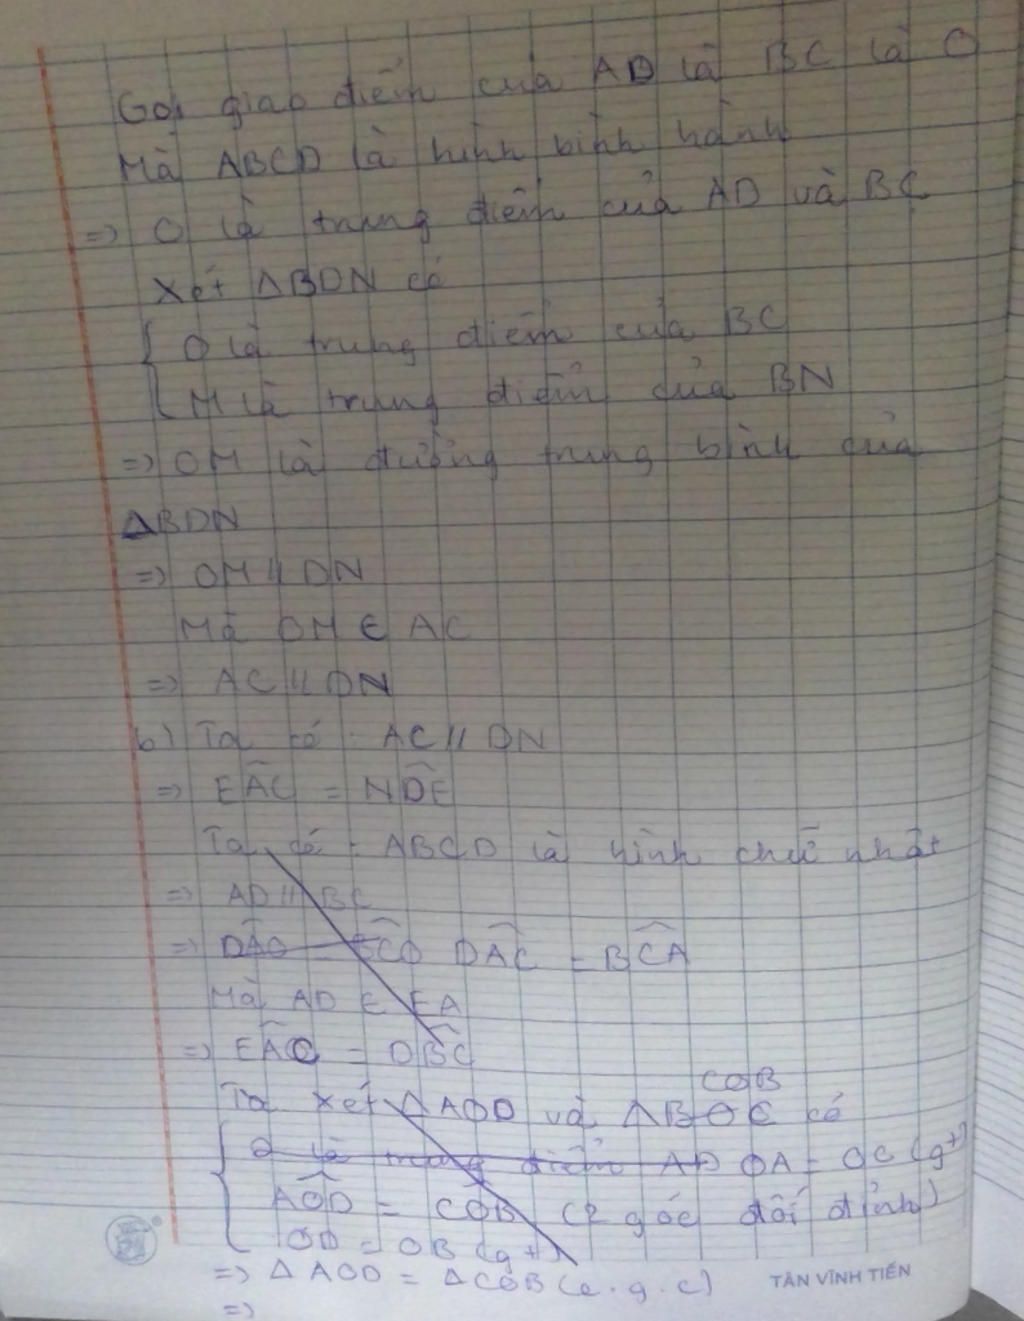 Gọi giao điểm của AD là BC là O
Mà ABCD là hình bình hành
=> O là trung điểm của AD và BC
Xét ΔBDN có
O là trung điểm của BC
M là trung điểm của BN
=> OM là đường trung bình của
ΔBDN
=> OM // DN
Mà OM ∈ AC
=> AC // DN
b) Ta có: AC // DN
=> EAC = NDE
Ta có: ABCD là hình chữ nhật
=> AD // BC
=> DAO = BCO DAC = BCA
Mà AD ∈ EA
=> EAO = DBC
COB
Ta xét ΔAOD và ΔBOC có
O là trung điểm AD OA = OC (gt)
AOD = COB (2 góc đối đỉnh)
OD = OB (gt)
=> ΔAOD = ΔCOB (c.g.c)
TÂN VĨNH TIẾN
=>